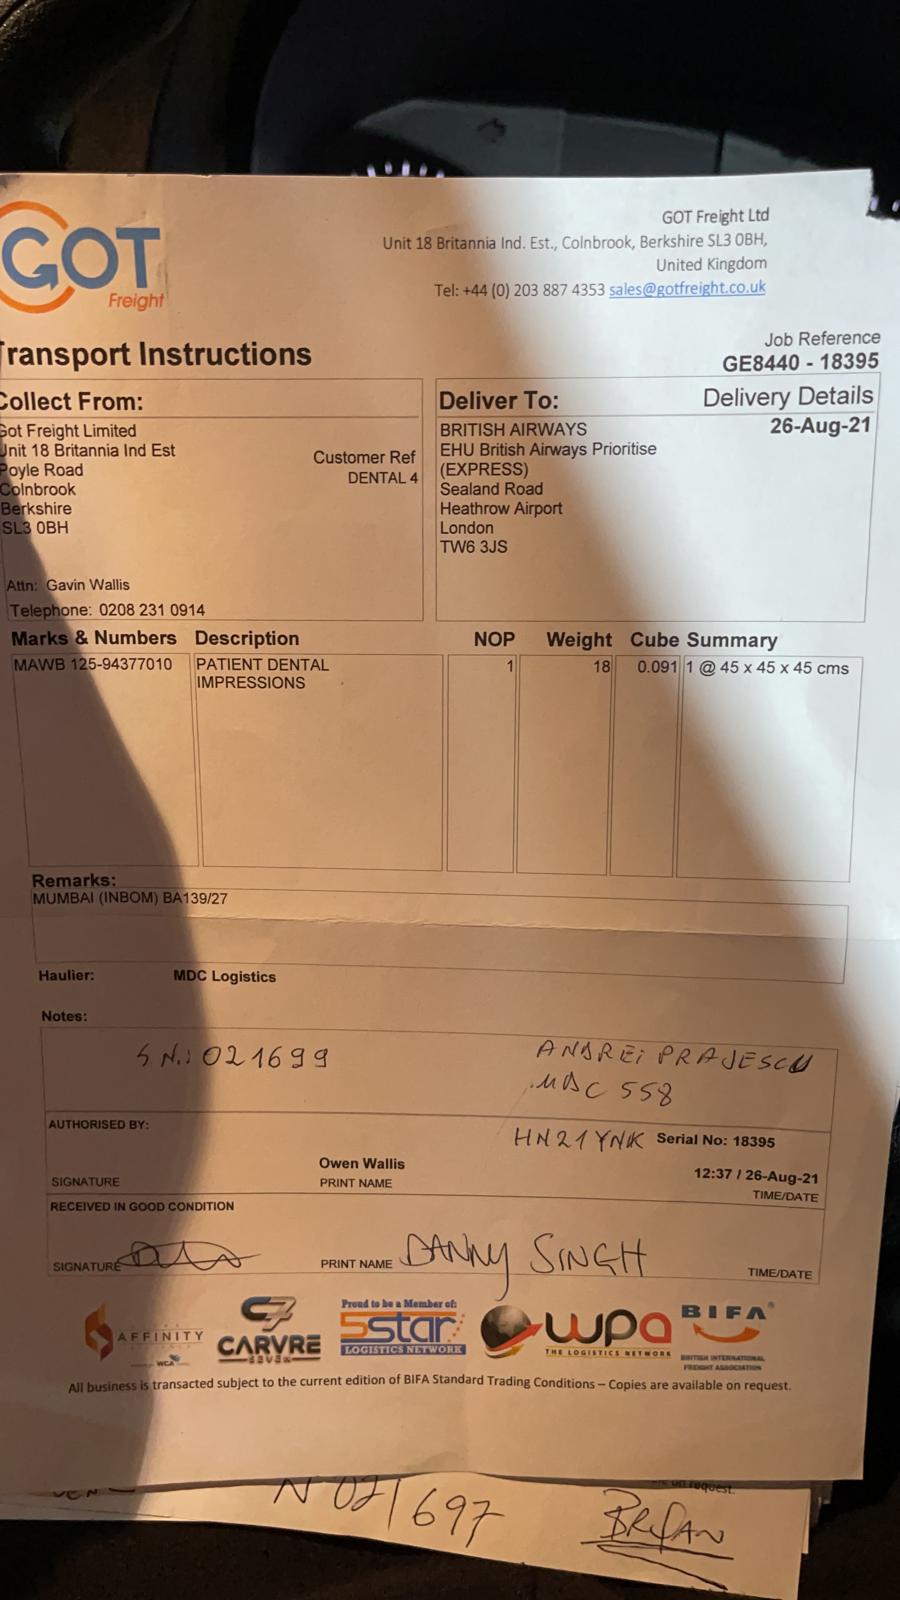 GOT
Freight
GOT Freight Ltd
Unit 18 Britannia Ind. Est., Colnbrook, Berkshire SL3 0BH,
United Kingdom
Tel: +44 (0) 203 887 4353 sales@gotfreight.co.uk
Transport Instructions
Job Reference
GE8440 - 18395
Collect From:
Got Freight Limited
Unit 18 Britannia Ind Est
Poyle Road
Colnbrook
Berkshire
SL3 0BH
Customer Ref
DENTAL 4
Attn: Gavin Wallis
Telephone: 0208 231 0914
Deliver To:
Delivery Details
26-Aug-21
BRITISH AIRWAYS
EHU British Airways Prioritise
(EXPRESS)
Sealand Road
Heathrow Airport
London
TW6 3JS
Marks & Numbers Description NOP Weight Cube Summary
MAWB 125-94377010 PATIENT DENTAL 1 18 0.091 1 @ 45 x 45 x 45 cms
IMPRESSIONS
Remarks:
MUMBAI (INBOM) BA139/27
Haulier: MDC Logistics
Notes:
S N.: 021699
ANDREI PRAJESCU
MDC 558
AUTHORISED BY:
HN21YNK Serial No: 18395
Owen Wallis
12:37 / 26-Aug-21
SIGNATURE PRINT NAME TIME/DATE
RECEIVED IN GOOD CONDITION
SIGNATURE PRINT NAME DANNY SINGH TIME/DATE
AFFINITY
WCA
CARVRE
SEVEN
Proud to be a Member of:
5star
LOGISTICS NETWORK
WPA
THE LOGISTICS NETWORK
BIFA
BRITISH INTERNATIONAL
FREIGHT ASSOCIATION
All business is transacted subject to the current edition of BIFA Standard Trading Conditions – Copies are available on request.
on request.
N 021697
BRYAN